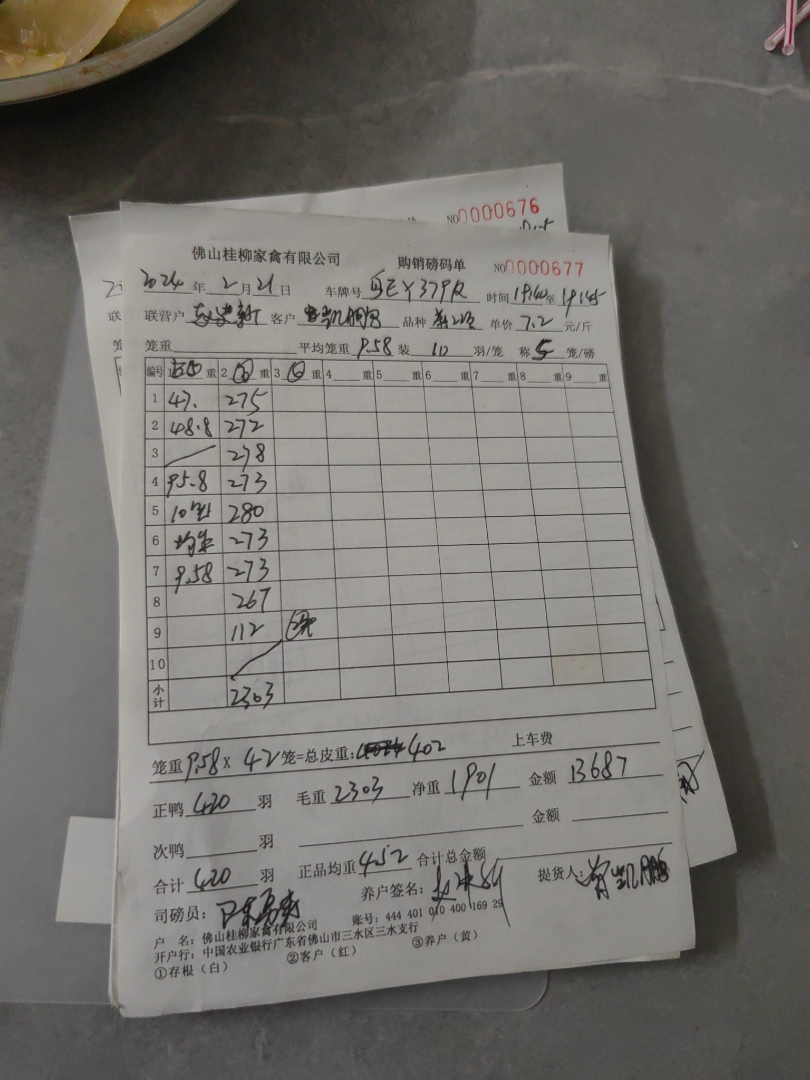 NO0000676
佛山桂柳家禽有限公司 购销磅码单 NO0000677
2024年2月21日 车牌号 时间 至
联营户 客户 品种 单价 7.2 元/斤
笼重 平均笼重 9.58 装 10 羽/笼 称 5 笼/磅
编号 1 重 2 重 3 重 4 重 5 重 6 重 7 重 8 重 9 重
1 47. 275
2 48.8 272
3 278
4 95.8 273
5 10 280
6 273
7 9.58 273
8 267
9 112
10
小计 2303
笼重 9.58 × 42 笼=总皮重: 402 上车费
正鸭 420 羽 毛重 2303 净重 1901 金额 13687
次鸭 羽 金额
合计 420 羽 正品均重 4.52 合计总金额
司磅员: 养户签名: 提货人:
户 名: 佛山桂柳家禽有限公司 账号: 444 401 010 400 169 29
开户行: 中国农业银行广东省佛山市三水区三水支行
①存根(白) ②客户(红) ③养户(黄)